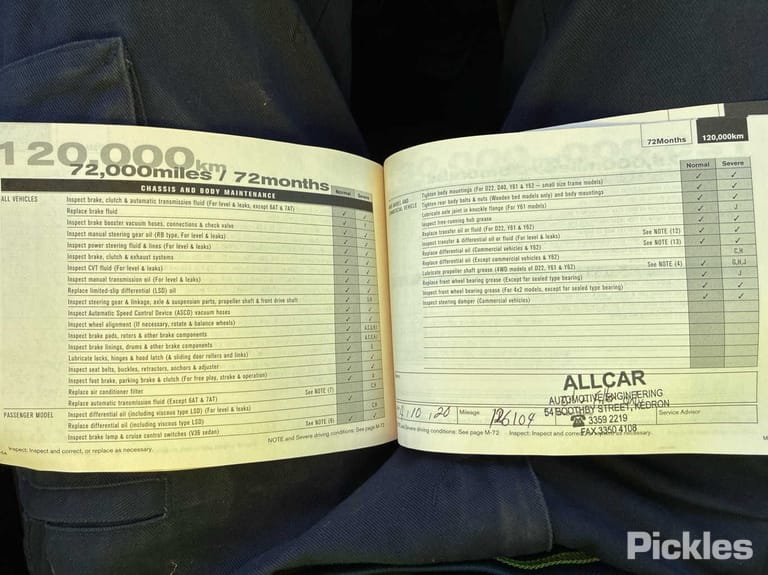 120,000km
72,000miles / 72months
CHASSIS AND BODY MAINTENANCE
Normal Severe
ALL VEHICLES
Inspect brake, clutch & automatic transmission fluid (For level & leaks, except 6AT & 7AT)
Replace brake fluid
Inspect brake booster vacuum hoses, connections & check valve
Inspect manual steering gear oil (RB type, For level & leaks)
Inspect power steering fluid & lines (For level & leaks)
Inspect brake, clutch & exhaust systems
Inspect CVT fluid (For level & leaks)
Inspect manual transmission oil (For level & leaks)
Replace limited-slip differential (LSD) oil
Inspect steering gear & linkage, axle & suspension parts, propeller shaft & front drive shaft
Inspect Automatic Speed Control Device (ASCD) vacuum hoses
Inspect wheel alignment (If necessary, rotate & balance wheels)
Inspect brake pads, rotors & other brake components
Inspect brake linings, drums & other brake components
Lubricate locks, hinges & hood latch (& sliding door rollers and links)
Inspect seat belts, buckles, retractors, anchors & adjuster
Inspect foot brake, parking brake & clutch (For free play, stroke & operation)
Replace air conditioner filter
See NOTE (7)
Replace automatic transmission fluid (Except 6AT & 7AT)
PASSENGER MODEL
Inspect differential oil (including viscous type LSD) (For level & leaks)
Replace differential oil (including viscous type LSD)
See NOTE (6)
Inspect brake lamp & cruise control switches (V36 sedan)
NOTE and Severe driving conditions: See page M-72
Inspect: Inspect and correct, or replace as necessary.
72Months 120,000km
Normal Severe
Tighten body mountings (For D22, D40, Y61 & Y62 – small size frame models)
Tighten rear body bolts & nuts (Wooden bed models only) and body mountings
Lubricate axle joint in knuckle flange (For Y61 models)
J
Inspect free-running hub grease
Replace transfer oil or fluid (For D22, Y61 & Y62)
See NOTE (12)
Inspect transfer & differential oil or fluid (For level & leaks)
See NOTE (13)
Replace differential oil (Commercial vehicles & Y62)
Replace differential oil (Except commercial vehicles & Y62)
C,H
Lubricate propeller shaft grease (4WD models of D22, Y61 & Y62)
See NOTE (4)
G,H,J
Replace front wheel bearing grease (Except for sealed type bearing)
J
Inspect front wheel bearing grease (For 4x2 models, except for sealed type bearing)
Inspect steering damper (Commercial vehicles)
ALLCAR
AUTOMOTIVE ENGINEERING
54 BOOTHBY STREET, KEDRON
☎ 3359 2219
FAX 3350 4108
10 20 Mileage 126109
Service Advisor
and Severe driving conditions: See page M-72 Inspect: Inspect and correct, or replace as necessary.
Pickles